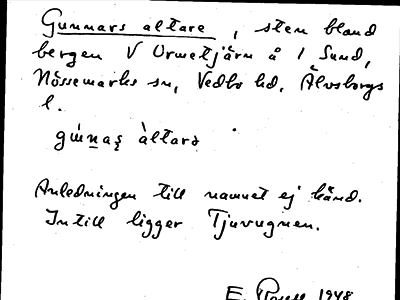 Gunnars altare, sten bland
bergen V Ormetjärn å 1 Sund,
Nössemarks sn, Vedbo hd, Älvsborgs
l.
gùnaş àltarə
Anledningen till namnet ej känd.
Intill ligger Tjuvugnen.
E. 1948